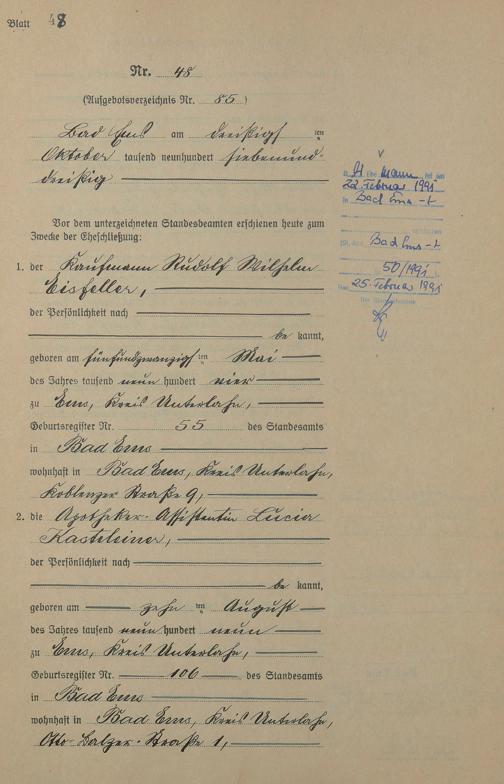 Blatt 48
Nr. 48
(Aufgebotsverzeichnis Nr. 85)
Bad Ems am dreißigsten
Oktober tausend neunhundert siebenund-
dreißig
Vor dem unterzeichneten Standesbeamten erschienen heute zum
Zwecke der Eheschließung:
1. der Kaufmann Rudolf Wilhelm
Eisfeller,
der Persönlichkeit nach
be kannt,
geboren am fünfundzwanzigsten Mai
des Jahres tausend neun hundert vier
zu Ems, Kreis Unterlahn,
Geburtsregister Nr. 55 des Standesamts
in Bad Ems
wohnhaft in Bad Ems, Kreis Unterlahn,
Koblenzer Straße 9,
2. die Apotheker-Assistentin Lucia
Kasteleiner,
der Persönlichkeit nach
be kannt,
geboren am zehn ten August
des Jahres tausend neun hundert neun
zu Ems, Kreis Unterlahn,
Geburtsregister Nr. 106 des Standesamts
in Bad Ems
wohnhaft in Bad Ems, Kreis Unterlahn,
Otto-Balzer-Straße 1,
Ehe mann ist am
22. Februar 1991
in Bad Ems
Bad Ems
50/1991
25. Februar 1991